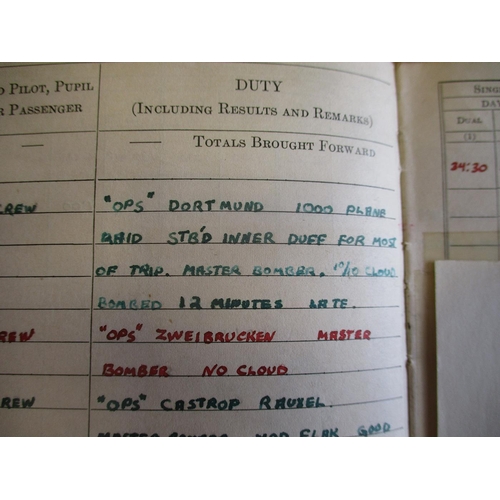 D PILOT, PUPIL
R PASSENGER
DUTY
(INCLUDING RESULTS AND REMARKS)
SING
DA
DUAL
(1)
— — TOTALS BROUGHT FORWARD
24:30
CREW "OPS" DORTMUND 1000 PLANE
RAID STB'D INNER DUFF FOR MOST
OF TRIP. MASTER BOMBER. 10/10 CLOUD
BOMBED 12 MINUTES LATE.
REW "OPS" ZWEIBRUCKEN MASTER
BOMBER NO CLOUD
REW "OPS" CASTROP RAUXEL.
MASTER BOMBER MOD FLAK GOOD